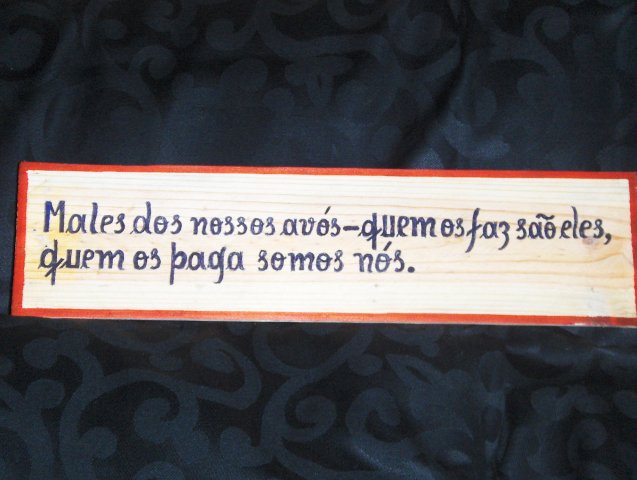 Males dos nossos avós-quem os faz são eles,
quem os paga somos nós.